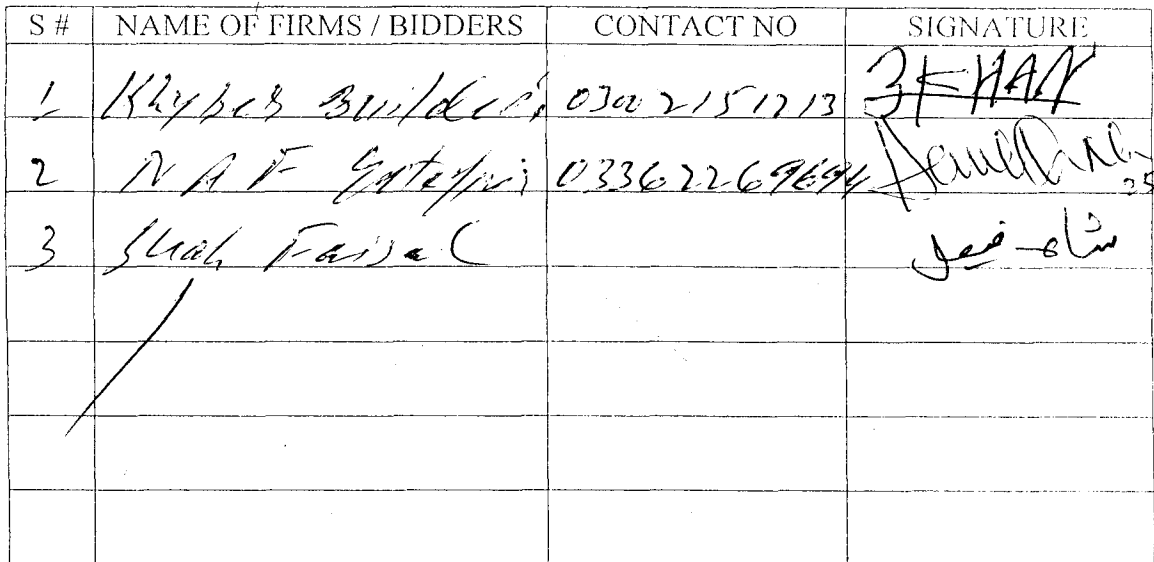 S # NAME OF FIRMS / BIDDERS CONTACT NO SIGNATURE
1 Khyber Builders 03002151213 3KHAN
2 N A F 03362269694
3 Shah Faisal شاہ فیصل